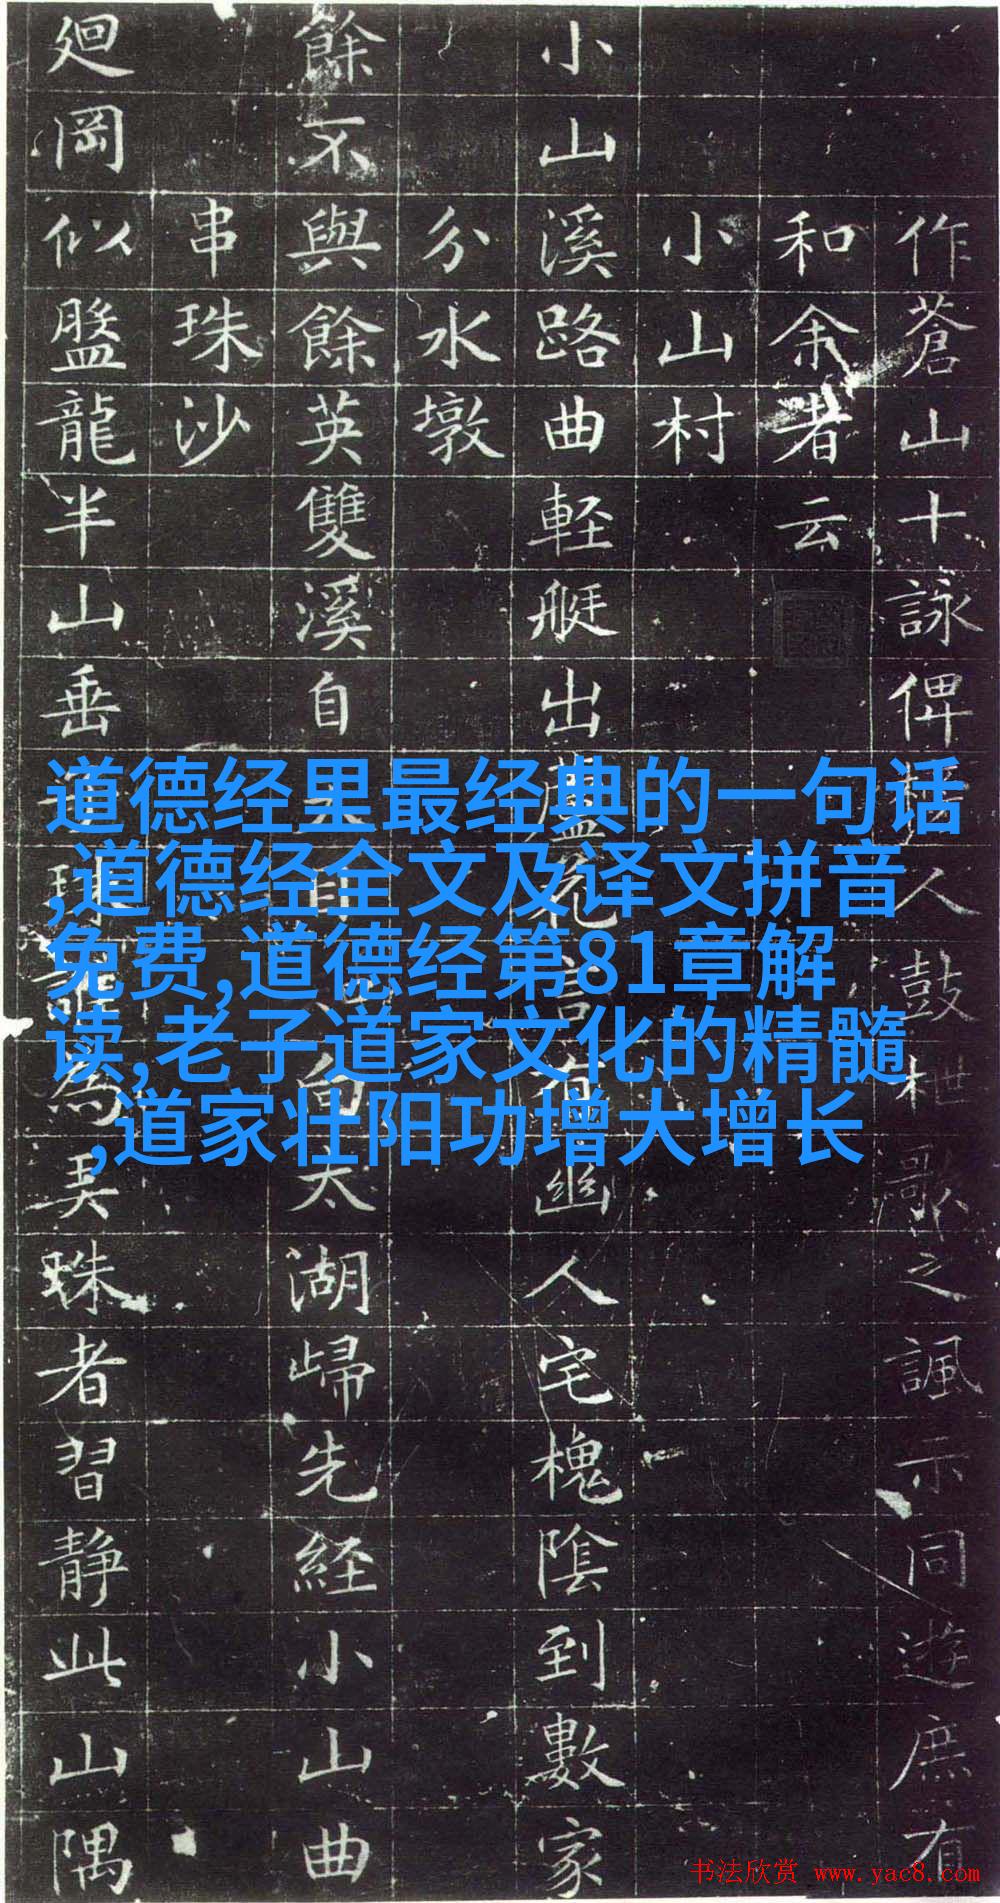 作蒼山十詠俾樵人鼓枻歌之諷示同遊庶有
和余者云
小山村
小山溪路曲軽艇出蘆花言有幽人宅槐陰到數家
分水墩
餘不與餘英雙溪自太湖歸先経小山曲
串珠沙
廻岡似盤龍半山垂為弄珠者習静此山隅
道德经里最经典的一句话
,道德经全文及译文拼音
免费,道德经第81章解
读,老子道家文化的精髓
,道家壮阳功增大增长
书法欣赏 www.yac8.com